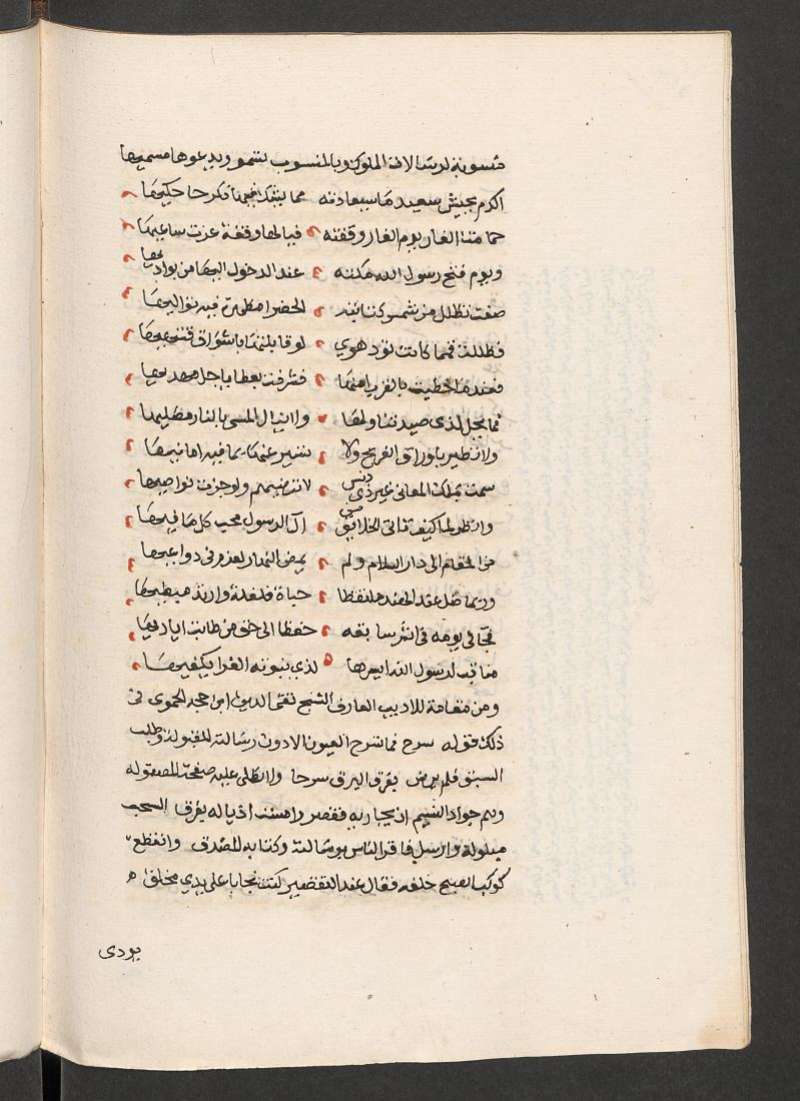 منسوبة لرسالات الملوك وبالمنسوب تسمو ويدعوها مسميها
اكرم بجيش سعيد ما سعادته مما يشك نجمها فكر حاكيها
حما متنا الغار يوم الغار وقفته فيا لها وقفة عزت ساعيها
ويوم فتح رسول الله مكته عند الدخول اليها من بواديها
صفت تظلل من شمس كتائبه الخضرا مظهرة فيه تواليها
فظللته فما كانت تود هوى لو قابلتها باشواق فتنحيها
فعندها حظيت بالقرب امنها فشرفت بعطايا جل مهديها
فما يحل لذي صيد تناولها ولا ينال المسى بالنار مصليها
ولا تطير باوراق الفرنج ولا تسير عنها بما فيه امانيها
سمت بملك المعاني غير ذي دنس لا ترضيهم ولو جزت نواصيها
وانظر لما كيف تاتي الخلائق من آل الرسول محب كل ما فيها
من المقام الى دار السلام ولم يمض النهار لعزم في دواعيها
وربما ضل عقد الهند ملتقطا حياة فلفلة وارتد مبطيها
فجا في يومه في اثر سابقه حفظا الى حق من طابت اياديها
مناقب لرسول الله ايسرها لذي بنبوته الغرا يكفيها
ومن مقامة للاديب العارف الشيخ تقي الدين ابن حجة الحموي في
ذلك قوله سرح فما سرح العيون الا دون رسالته المقبولة وطلب
السبق فلم يرض بفرق البرق سرحا ولا استظلي عليه صفحته المصقولة
وهم جواد النسيم ان يجاريه فقصر وامست اذياله بعرق السحب
مبلولة وارسل فاقر الناس برسالته وكتابه المصدق وانقطع
كوكب الصبح خلفه فقال عند التقصير كنت نجابا على يدي مخلق
يودى